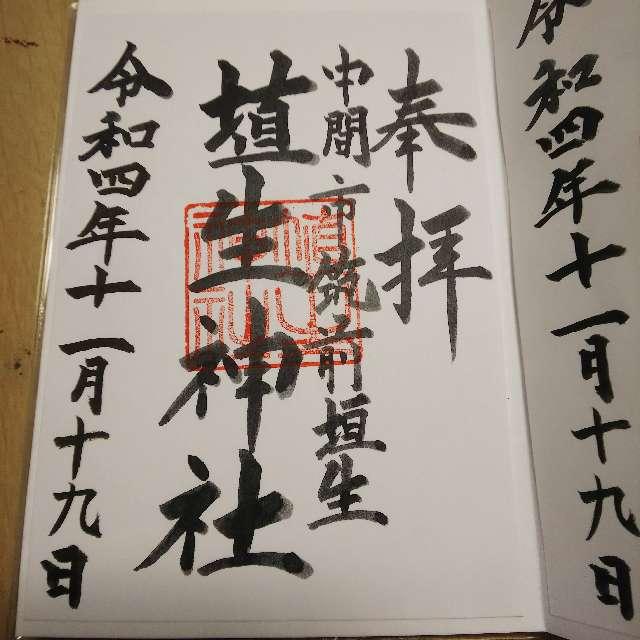 令和四年十一月十九日
奉拝
中間市筑前垣生
埴生神社
令和四年十一月十九日